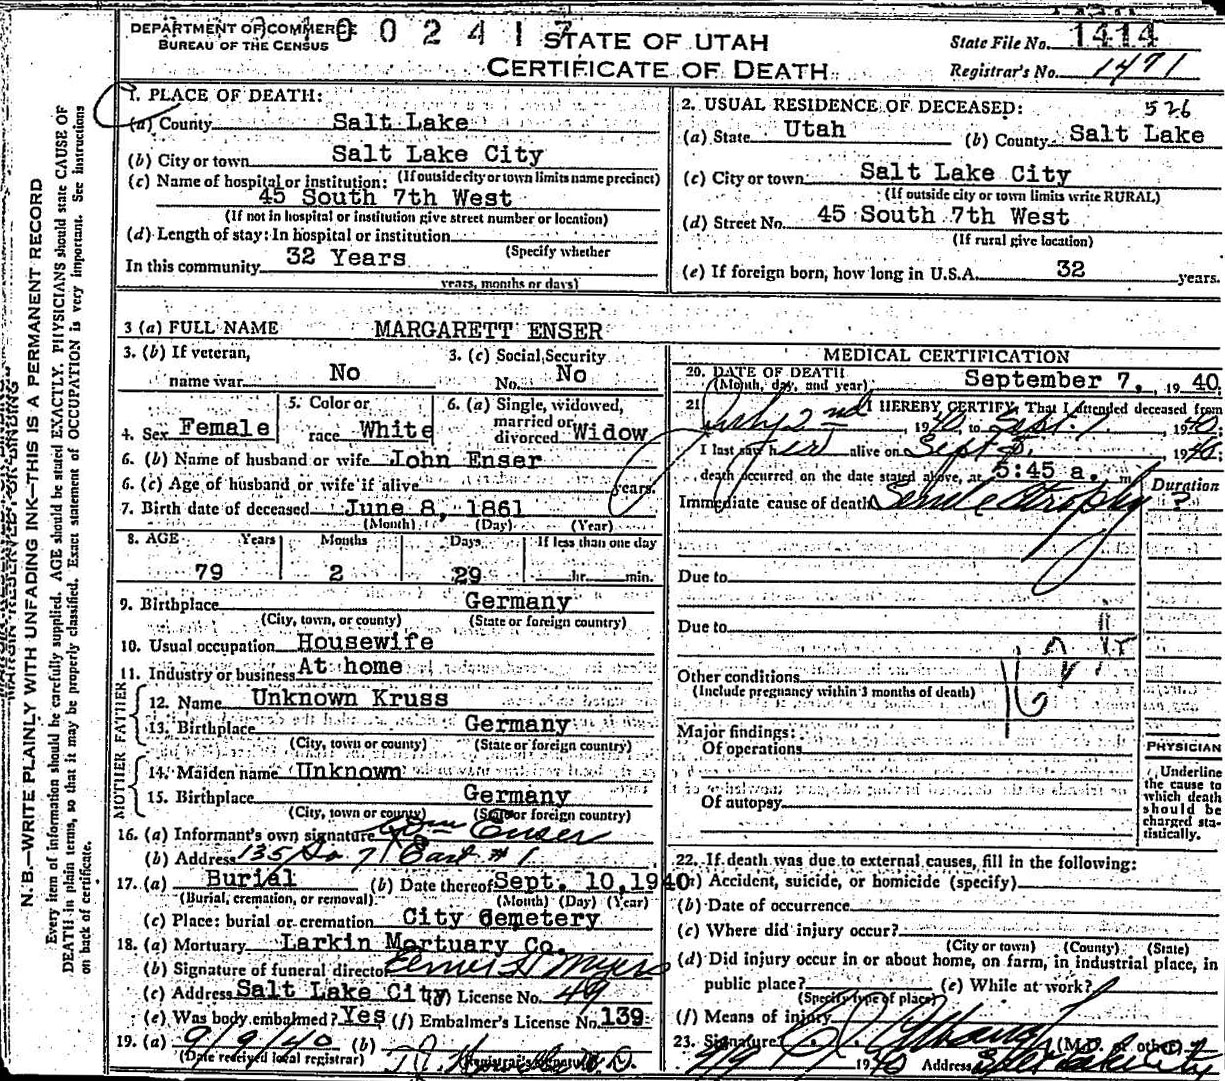 DEPARTMENT OF COMMERCE
BUREAU OF THE CENSUS
002417
STATE OF UTAH
CERTIFICATE OF DEATH
State File No. 1414
Registrar's No. 1471
1. PLACE OF DEATH:
(a) County Salt Lake
(b) City or town Salt Lake City
(If outside city or town limits name precinct)
(c) Name of hospital or institution:
45 South 7th West
(If not in hospital or institution give street number or location)
(d) Length of stay: In hospital or institution
(Specify whether
In this community 32 Years
years, months or days)
2. USUAL RESIDENCE OF DECEASED: 526
(a) State Utah (b) County Salt Lake
(c) City or town Salt Lake City
(If outside city or town limits write RURAL)
(d) Street No. 45 South 7th West
(If rural give location)
(e) If foreign born, how long in U.S.A. 32 years.
3 (a) FULL NAME MARGARETT ENSER
3. (b) If veteran,
name war No
3. (c) Social Security
No. No
4. Sex Female
5. Color or
race White
6. (a) Single, widowed,
married or
divorced Widow
6. (b) Name of husband or wife John Enser
6. (c) Age of husband or wife if alive years.
7. Birth date of deceased June 8, 1861
(Month) (Day) (Year)
8. AGE Years Months Days If less than one day
79 2 29 hr. min.
9. Birthplace Germany
(City, town, or county) (State or foreign country)
10. Usual occupation Housewife
11. Industry or business At home
FATHER
12. Name Unknown Kruss
13. Birthplace Germany
(City, town or county) (State or foreign country)
MOTHER
14. Maiden name Unknown
15. Birthplace Germany
(City, town or county) (State or foreign country)
16. (a) Informant's own signature Enser
(b) Address 135 So 7 East #1
17. (a) Burial (b) Date thereof Sept. 10, 1940
(Burial, cremation, or removal) (Month) (Day) (Year)
(c) Place: burial or cremation City Cemetery
18. (a) Mortuary Larkin Mortuary Co.
(b) Signature of funeral director Myers
(c) Address Salt Lake City (d) License No. 49
(e) Was body embalmed? Yes (f) Embalmer's License No. 139
19. (a) 9/9/40 (b)
(Date received local registrar) (Registrar's signature)
MEDICAL CERTIFICATION
20. DATE OF DEATH
(Month, day, and year) September 7, 1940
21. I HEREBY CERTIFY, That I attended deceased from
July 2nd, 1940, to Sept. 7, 1940;
I last saw her alive on Sept 5, 1940;
death occurred on the date stated above, at 5:45 a. m.
Duration
Immediate cause of death Senile Atrophy ?
Due to
Due to
Other conditions
(Include pregnancy within 3 months of death)
Major findings:
Of operations
Of autopsy
PHYSICIAN
Underline
the cause to
which death
should be
charged sta-
tistically.
22. If death was due to external causes, fill in the following:
(a) Accident, suicide, or homicide (specify)
(b) Date of occurrence
(c) Where did injury occur?
(City or town) (County) (State)
(d) Did injury occur in or about home, on farm, in industrial place, in
public place? (e) While at work?
(Specify type of place)
(f) Means of injury
23. Signature (M.D. or other)
1940 Address Salt Lake City
N. B.—WRITE PLAINLY WITH UNFADING INK—THIS IS A PERMANENT RECORD
Every item of information should be carefully supplied. AGE should be stated EXACTLY. PHYSICIANS should state CAUSE OF
DEATH in plain terms, so that it may be properly classified. Exact statement of OCCUPATION is very important. See instructions
on back of certificate.